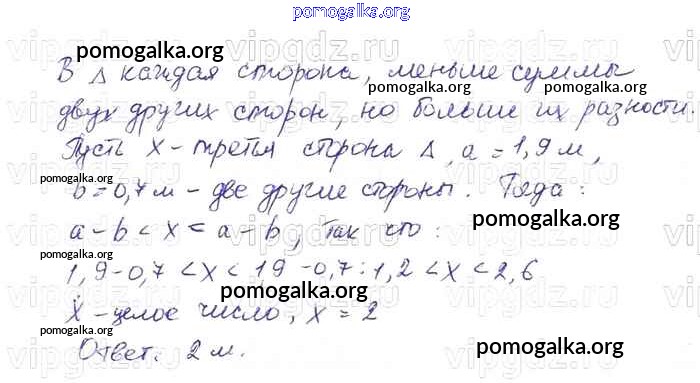 pomogalka.org
vipgdz.ru vipgdz.ru vipgdz.ru
pomogalka.org pomogalka.org
В Δ каждая сторона, меньше суммы
pomogalka.org pomogalka.org
двух других сторон, но больше их разности.
Пусть x - третья сторона Δ, a = 1,9 м,
pomogalka.org
b = 0,7 м - две другие стороны. Тогда:
pomogalka.org
a - b < x < a - b, так что:
1,9 - 0,7 < x < 1,9 - 0,7 : 1,2 < x < 2,6
pomogalka.org
X - целое число, x = 2
pomogalka.org
Ответ. 2 м.
pomogalka.org
vipgdz.ru vipgdz.ru vipgdz.ru